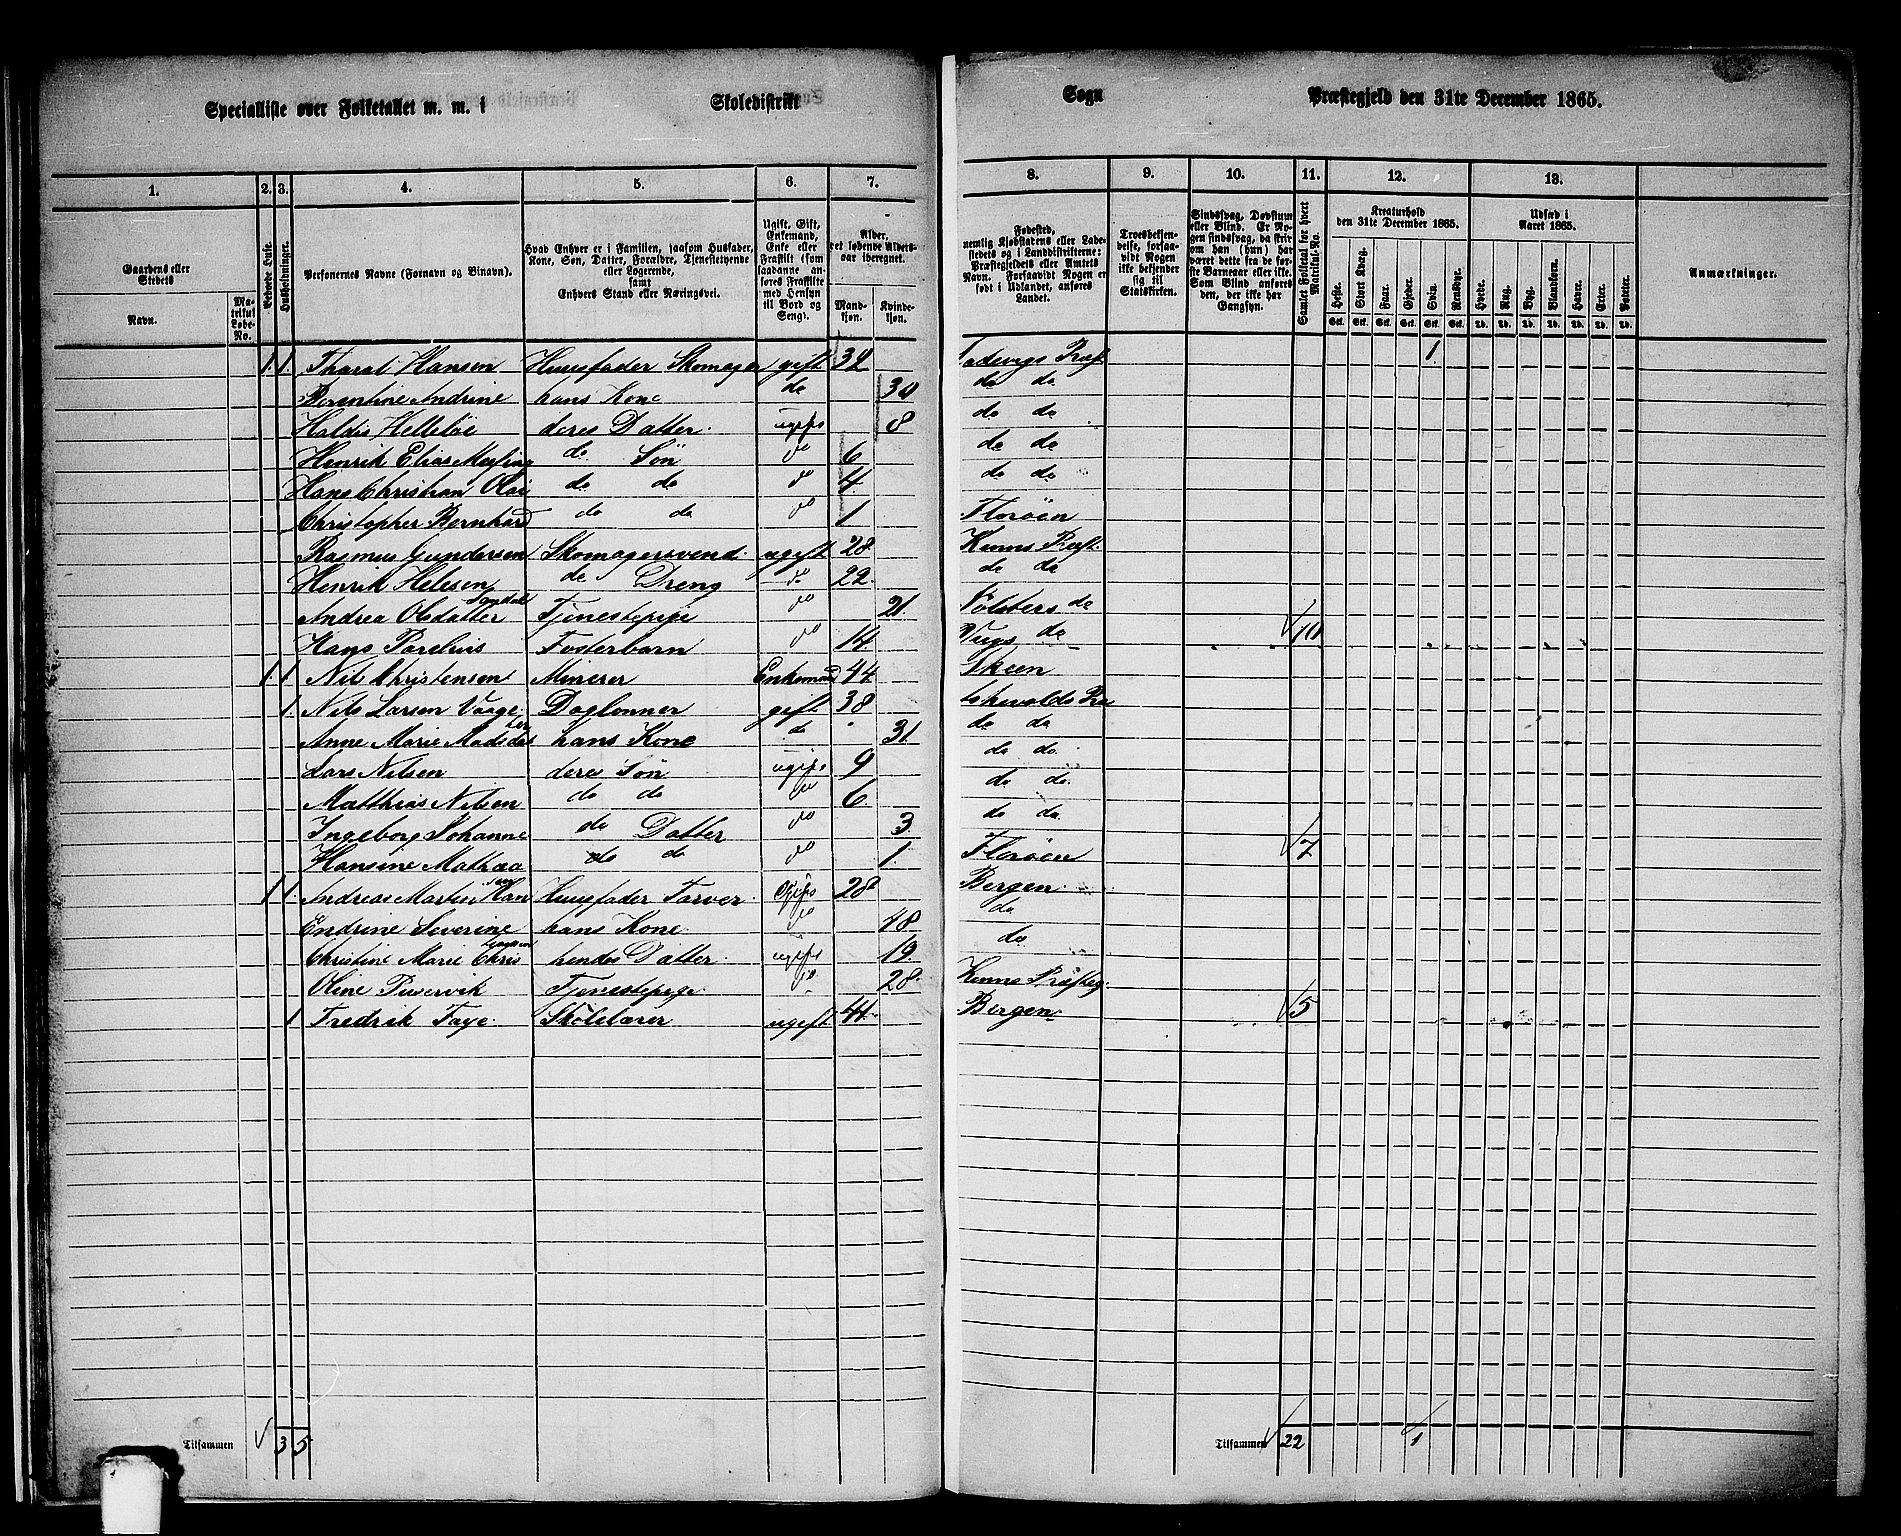 Specialliste over Folketallet m. m. i Skoledistrikt Sogn Præstegjeld den 31te December 1865.
1. 2. 3. 4. 5. 6. 7. 8. 9. 10. 11. 12. 13.
Gaardens eller Stedets
Navn.
Matrikul Løbe-No.
Beboede Huse.
Husholdninger.
Personernes Navne (Fornavn og Binavn).
Hvad Enhver er i Familien, saasom Husfader, Kone, Søn, Datter, Forældre, Tjenestetyende eller Logerende, samt Enhvers Stand eller Næringsvei.
Ugift, Gift, Enkemand, Enke eller Fraskilt (som saadanne anføres Fraskilte med Hensyn til Bord og Seng).
Alder, det løbende Alders-aar iberegnet.
Mand-kjøn.
Kvinde-kjøn.
Fødested, nemlig Kjøbstadens eller Ladestedets og i Landdistrikterne: Præstegjeldets eller Amtets Navn. Forsaavidt Nogen er født i Udlandet, anføres Landet.
Troesbekjendelse, forsaavidt Nogen ikke bekjender sig til Statskirken.
Sindssvag, Døvstum eller Blind. Er Nogen sindssvag, da skrives om han (hun) har været dette fra de første Barneaar eller ikke. Som Blind anføres den, der ikke har Gangsyn.
Samlet Folketal for hvert Matrikul-No.
Kreaturhold den 31te December 1865.
Heste. Stort Kvæg. Faar. Gjeder. Svin. Rensdyr.
Udsæd i Aaret 1865.
Hvede. Rug. Byg. Blandkorn. Havre. Erter. Poteter.
Anmærkninger.
1. 1. Tharal Hansen Huusfader Skomager gift 34 1.
Andrine hans Kone do 30 do do
Haldis Helleløe deres Datter. ugift 8 do do
Henrik Elias do Søn do 6 do do
Hans Christian do do do 4 do do
Christopher Bernhard do do do 1 Florøen
Rasmus Gundersen Skomagersvend. ugift 28 Kinns Præst.
Henrik Helesen do Dreng do 22 do do
Andrea Olsdatter Tjenestepige do 21 do
Hans Parelius Fosterbarn do 14 do 10
1 1 Nils Christensen Minerer Enkemand 44 Skeen
1. Nils Larsen Vaage Daglønner gift 38
Anne Marie Madsdatter hans Kone do 31 do do
Lars Nilsen deres Søn ugift 9 do do
Matthias Nilsen do do do 6 do do
Ingeborg Johanne do Datter do 3 do do
Hansine Mathea do do do 1. Florøen 7
1 1. Andreas Martin Hansen Huusfader Farver. gift 28 Bergen
Endrine Severine hans Kone do 48 do
Christine Marie hendes Datter. ugift 19. do
Oline Tjenestepige do 28 Kinns Præsteg.
1 Fredrik Faye Skolelærer ugift 41 Bergen 5
Tilsammen 3 5 Tilsammen 22 1